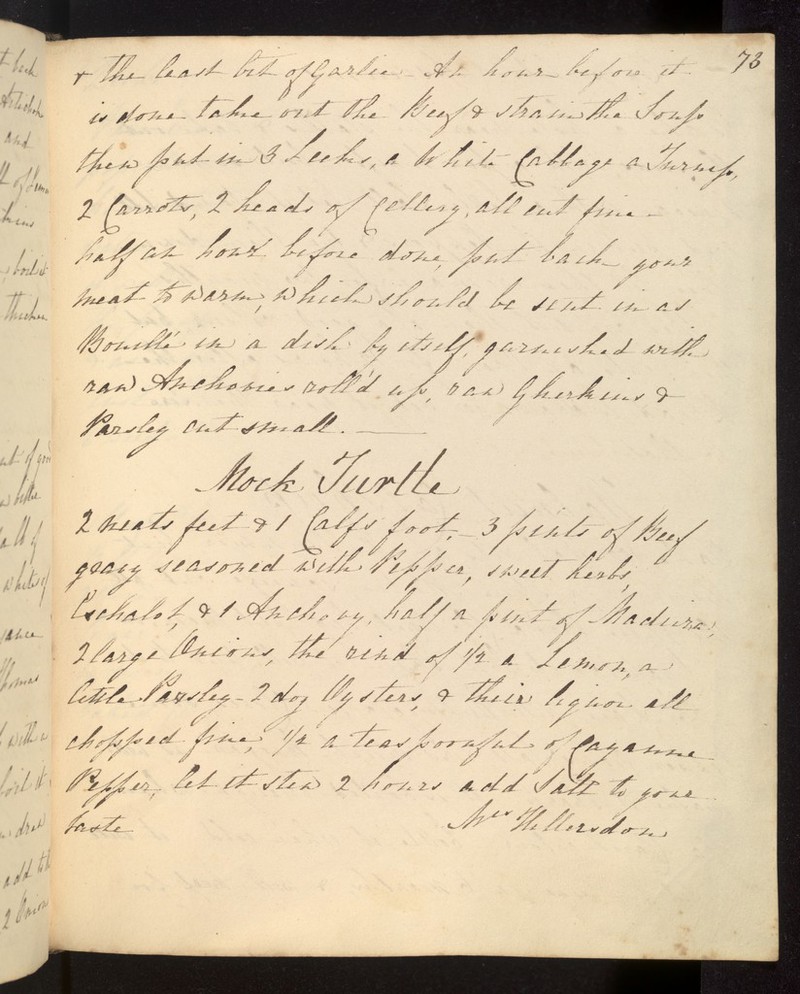 73
& the least bit of Garlic - An hour before it
is done take out the Beef & strain the Soup
then put in 3 Leeks, a White Cabbage a Turnip,
2 Carrots, 2 heads of Cellery, all cut fine -
half an hour before done, put back your
meat to warm, which should be sent in as
Bouillé in a dish by itself, garnished with
raw Anchovies roll'd up, raw Gherkins &
Parsley cut small.
Mock Turtle
2 neats feet & 1 Calfs foot, - 3 pints of Beef
gravy seasoned with Pepper, sweet herbs,
Eschalot, & 1 Anchovy, half a pint of Madeira,
2 large Onions, the rind of 1/2 a Lemon, a
little Parsley - 2 doz Oysters, & their liquor all
chopped fine, 1/2 a teaspoonful of Cayanne
Pepper, let it stew 2 hours add Salt to your
taste
Mrs Hellersdon